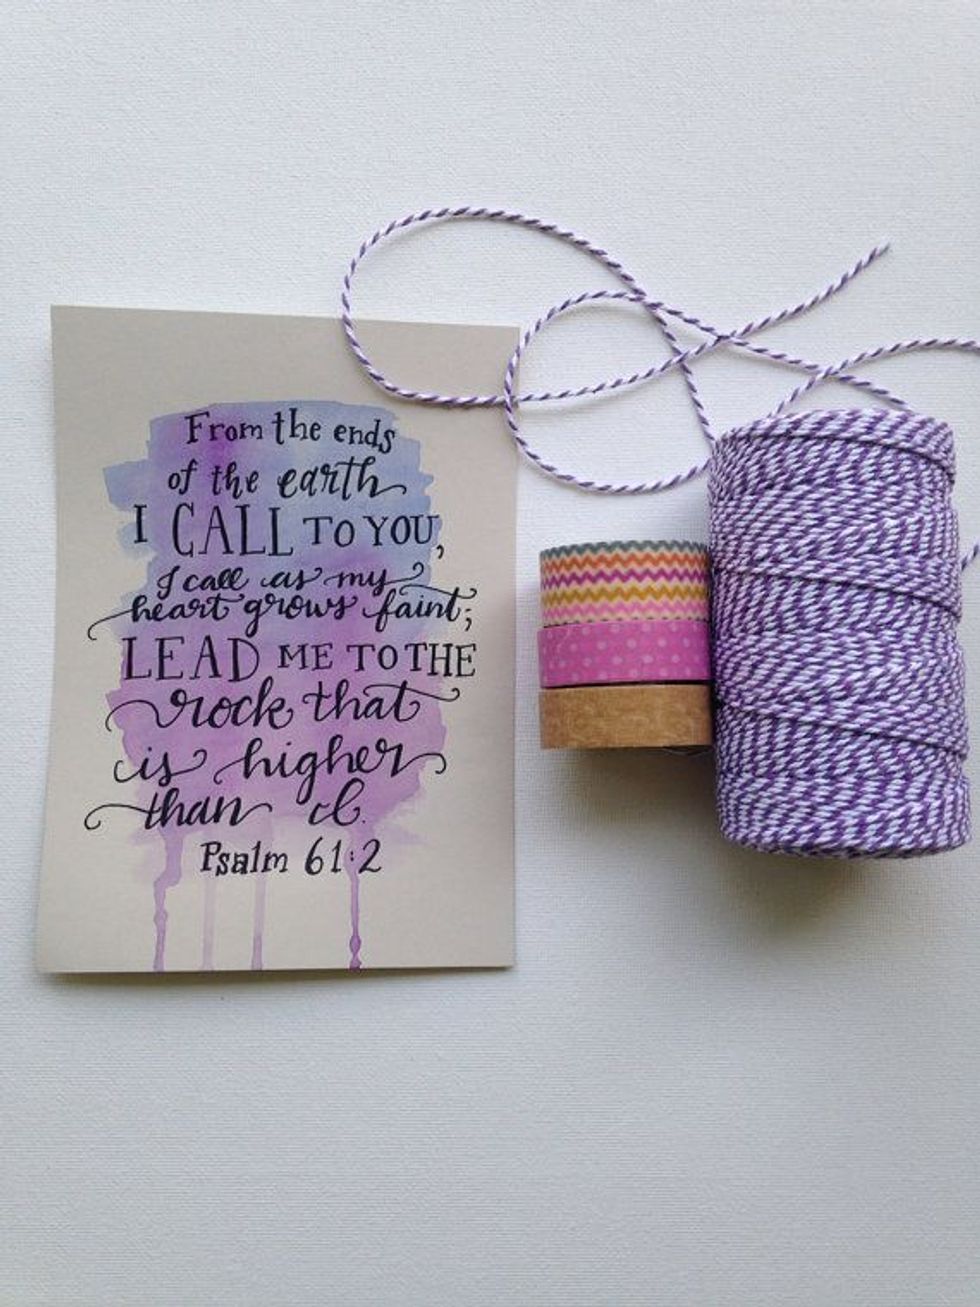 From the ends
of the earth
I CALL TO YOU,
I call as my
heart grows faint;
LEAD ME TO THE
rock that
is higher
than I.
Psalm 61:2